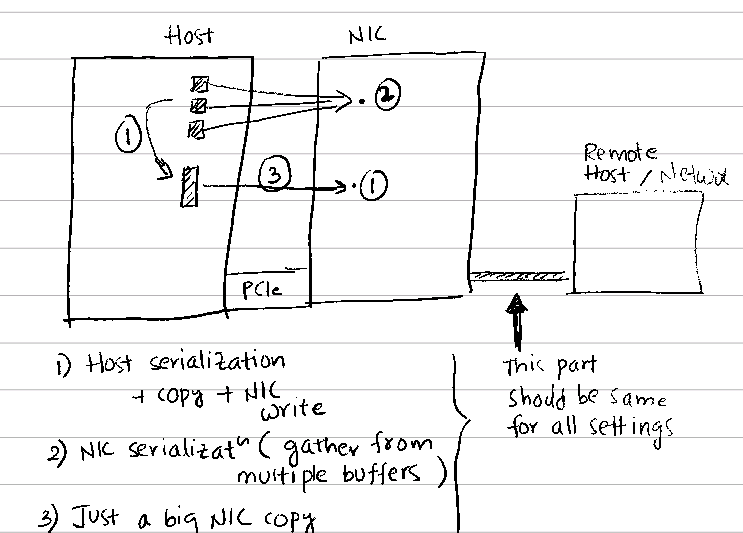 Host
NIC
②
①
③
①
Remote
Host /
PCIe
1) Host serialization
+ copy + NIC
write
2) NIC serializatn ( gather from
multiple buffers )
3) Just a big NIC copy
This part
should be same
for all settings